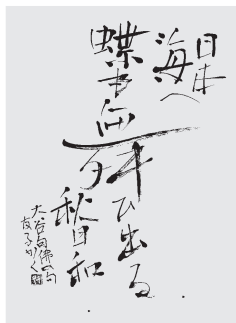 日本
海へ
蝶も
舞ひ出る
秋日和
大谷句佛の句